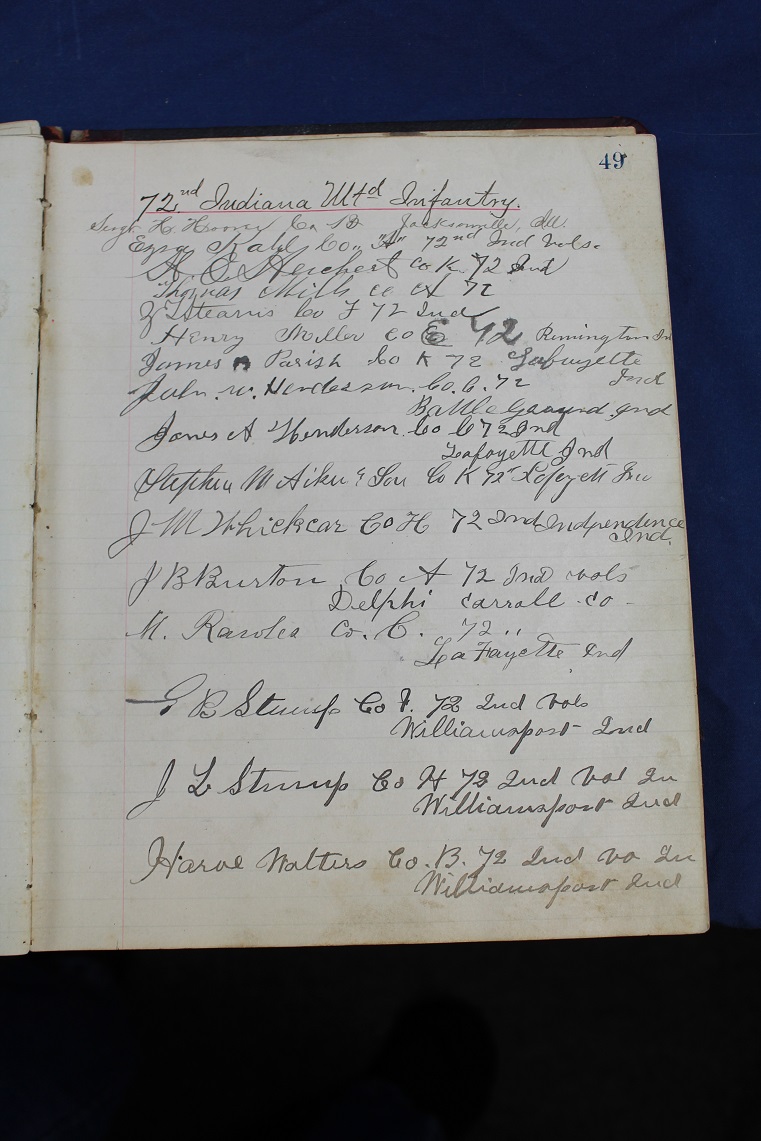 49
72nd Indiana Mtd Infantry.
Co. Jacksonville, Ill.
Ezra Co. "A" 72nd Ind Vols.
Co K. 72 Ind
Thomas Mills co 72
Stearns Co F 72 Ind
Henry Miller Co E 72 Remington In
James Parish Co K 72 Lafayette
Ind
John. W. Henderson. Co. C. 72
Battle Ground Ind
James A Henderson. Co C 72 Ind
Lafayette Ind
Stephen M Aiken & Son Co K 72"
J M Whickcar Co H 72 Ind Indpendence
Ind.
J B Burton Co A 72 Ind vols
Delphi carroll co -
M. Co. C. 72 "
LaFayette Ind
B Stump Co 72 Ind Vols
Williamsport Ind
J L Stump Co H 72 Ind Vol In
Williamsport Ind
Harve Walters Co. B. 72 Ind vo In
Williamsport Ind